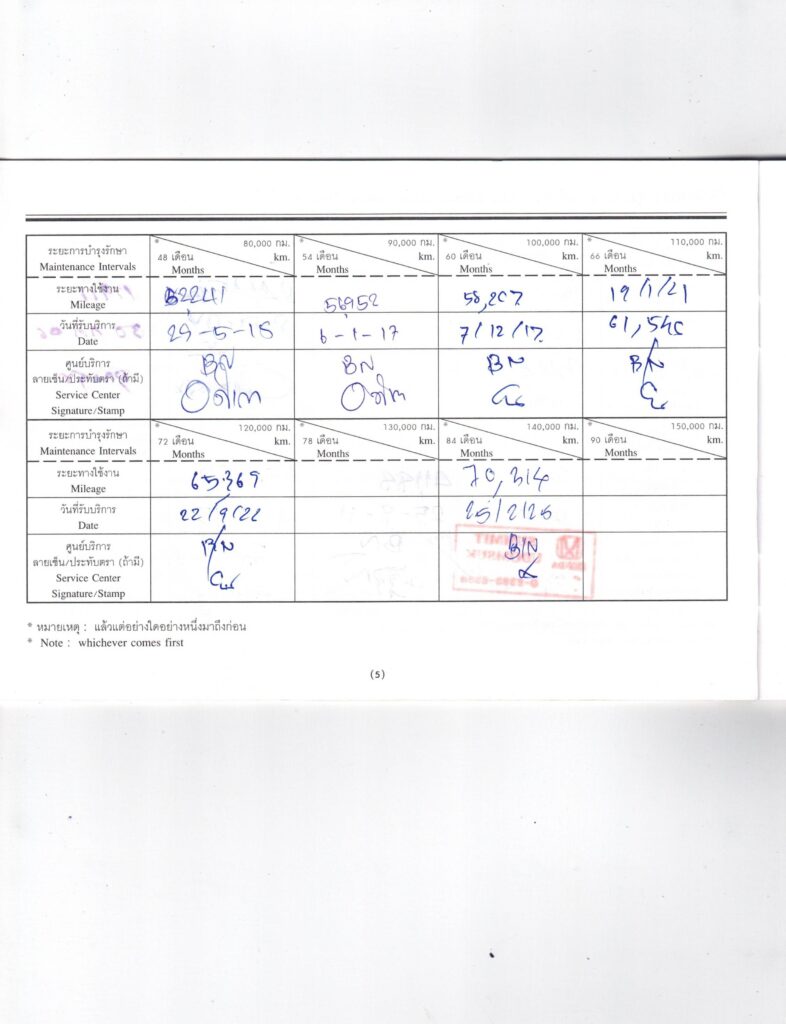 ระยะการบำรุงรักษา
Maintenance Intervals
* 80,000 กม.
48 เดือน km.
Months
* 90,000 กม.
54 เดือน km.
Months
* 100,000 กม.
60 เดือน km.
Months
* 110,000 กม.
66 เดือน km.
Months
ระยะทางใช้งาน
Mileage
52241
56952
58,207
19/1/21
วันที่รับบริการ
Date
6-1-17
7/12/17
ศูนย์บริการ
ลายเซ็น/ประทับตรา (ถ้ามี)
Service Center
Signature/Stamp
BN
BN
BN
B/N
ระยะการบำรุงรักษา
Maintenance Intervals
* 120,000 กม.
72 เดือน km.
Months
* 130,000 กม.
78 เดือน km.
Months
* 140,000 กม.
84 เดือน km.
Months
* 150,000 กม.
90 เดือน km.
Months
ระยะทางใช้งาน
Mileage
65369
70,314
วันที่รับบริการ
Date
22/9/22
25/2/25
ศูนย์บริการ
ลายเซ็น/ประทับตรา (ถ้ามี)
Service Center
Signature/Stamp
B/N
B/N
* หมายเหตุ : แล้วแต่อย่างใดอย่างหนึ่งมาถึงก่อน
* Note : whichever comes first
(5)